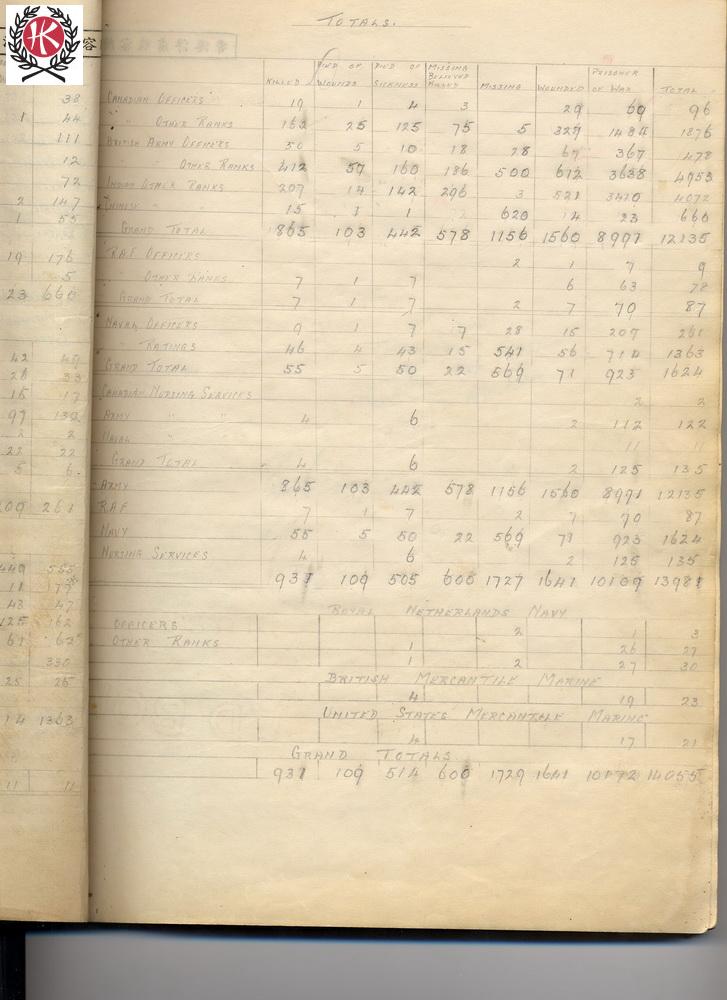 TOTALS.
KILLED DIED OF WOUNDS DIED OF SICKNESS MISSING BELIEVED KILLED MISSING WOUNDED PRISONER OF WAR TOTAL
CANADIAN OFFICERS 19 1 4 3 29 69 96
" OTHER RANKS 162 25 125 75 5 327 1484 1876
BRITISH ARMY OFFICERS 50 5 10 18 28 67 367 478
OTHER RANKS 412 57 160 186 500 612 3638 4953
INDIAN OTHER RANKS 207 14 142 296 3 521 3410 4072
CHINESE " " 15 1 1 620 14 23 660
GRAND TOTAL 865 103 442 578 1156 1560 8991 12135
R.A.F. OFFICERS 2 1 7 9
OTHER RANKS 7 1 7 6 63 78
GRAND TOTAL 7 1 7 2 7 70 87
NAVAL OFFICERS 9 1 7 7 28 15 209 261
" RATINGS 46 4 43 15 541 56 714 1363
GRAND TOTAL 55 5 50 22 569 71 923 1624
CANADIAN NURSING SERVICES 2 2
ARMY " " 4 6 2 112 122
NAVAL " " 11 11
GRAND TOTAL 4 6 2 125 135
ARMY 865 103 442 578 1156 1560 8991 12135
RAF 7 1 7 2 7 70 87
NAVY 55 5 50 22 569 71 923 1624
NURSING SERVICES 4 6 2 125 135
931 109 505 600 1727 1641 10109 13981
ROYAL NETHERLANDS NAVY
OFFICERS 2 1 3
OTHER RANKS 1 26 27
1 2 27 30
BRITISH MERCANTILE MARINE
4 19 23
UNITED STATES MERCANTILE MARINE
4 17 21
GRAND TOTALS
931 109 514 600 1729 1641 10172 14055